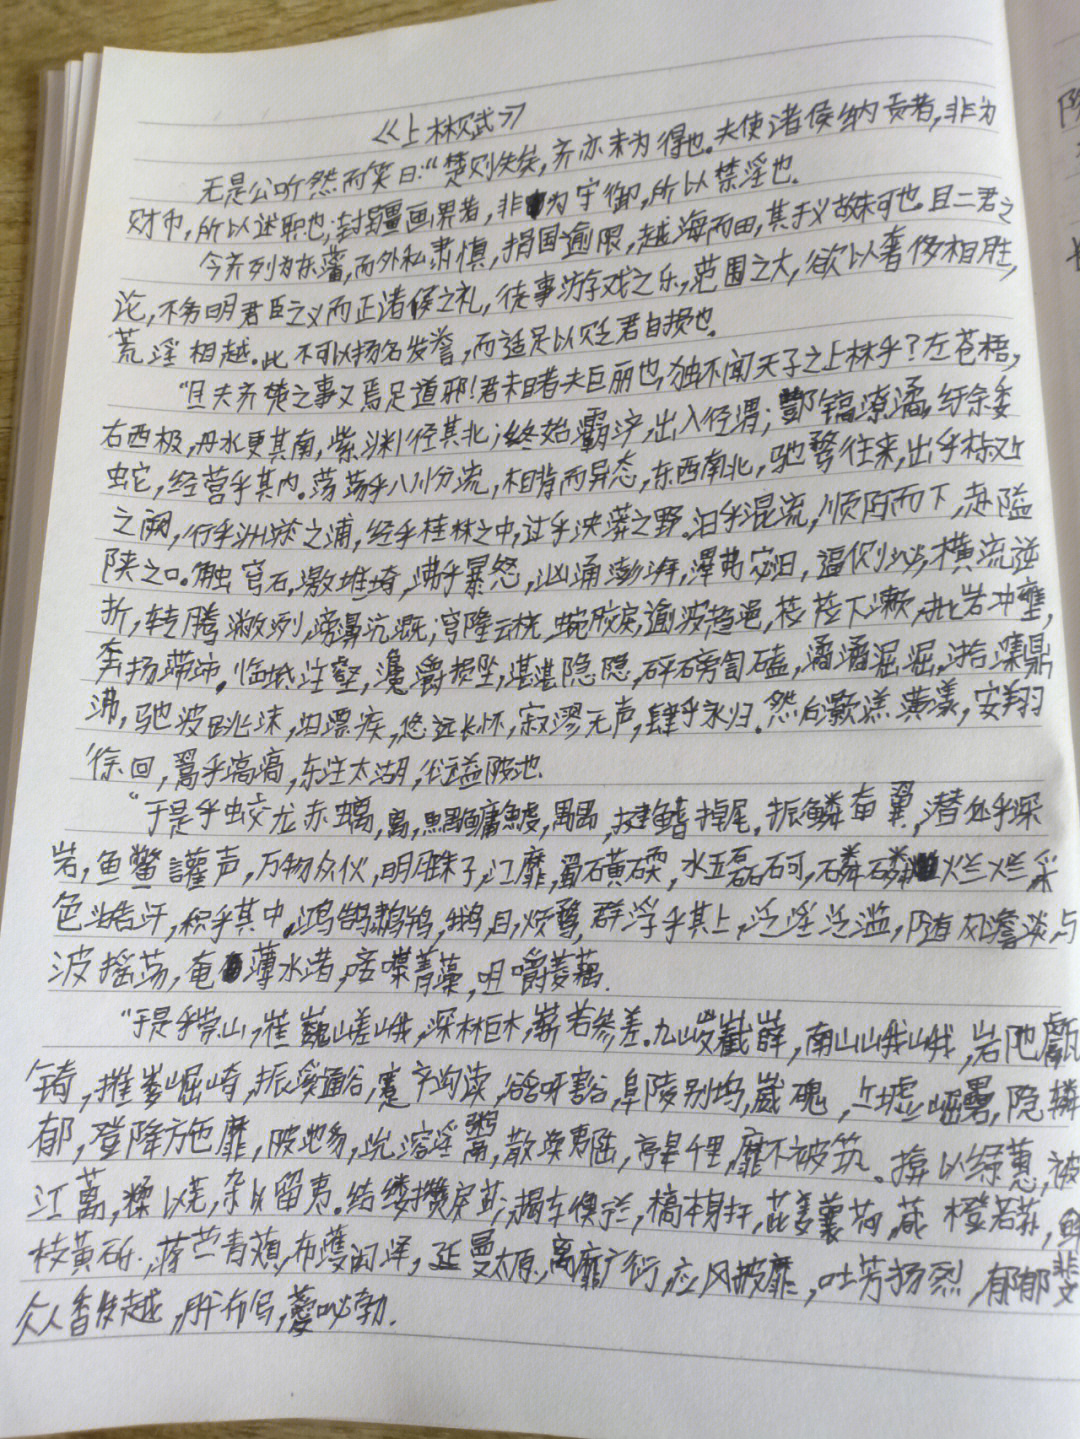 《上林赋》
无是公听然而笑曰:“楚则失矣,齐亦未为得也。夫使诸侯纳贡者,非为
财币,所以述职也;封疆画界者,非为守御,所以禁淫也.
今齐列为东藩,而外私肃慎,捐国逾限,越海而田,其于义故未可也.且二君之
论,不务明君臣之义而正诸侯之礼,徒事游戏之乐,范围之大,欲以奢侈相胜,
荒淫相越.此不可以扬名发誉,而适足以贬君自损也.
“且夫齐楚之事又焉足道邪!君未睹夫巨丽也,独不闻天子之上林乎?左苍梧,
右西极,丹水更其南,紫渊径其北;终始霸浐,出入径渭;酆镐潦潏,纡余委
蛇,经营乎其内.荡荡乎八川分流,相背而异态,东西南北,驰骛往来,出乎椒丘
之阙,行乎洲淤之浦,经乎桂林之中,过乎泱莽之野.汩乎混流,顺阿而下,赴隘
陕之口.触穹石,激堆埼,沸乎暴怒,汹涌澎湃,滭弗宓汩,逼侧泌,横流逆
折,转腾潎洌,滂濞沆溉;穹隆云桡,宛胶戾,逾波趋浥,莅莅下濑,批岩冲壅,
奔扬滞沛.临坻注壑,瀺灂损坠,堪堪隐隐,砰磅訇磕,潏潏淈淈,湁潗鼎
沸,驰波跳沫,汩漂疾,悠远长怀,寂漻无声,肆乎永归.然后灏溔潢漾,安翔
徐回,翯乎滈滈,东注太湖,衍溢陂池.
“于是乎蛟龙赤螭,,揵鳍掉尾,振鳞奋翼,潜处乎深
岩,鱼鳖讙声,万物众伙,明月珠子,江靡,蜀石黄碝,水玉磊砢,磷磷烂烂,采
色澔汗,积乎其中.鸿鹄鹔鸨,鹅,目,烦鹜,群浮乎其上,泛淫泛滥,随风澹淡,与
波摇荡,奄薄水渚,唼喋菁藻,咀嚼菱藕.
“于是乎崇山,崔巍嵯峨,深林巨木,崭若参差.九嵏巀嶭,南山峨峨,岩阤甗
锜,摧崣崛崎,振溪通谷,蹇产沟渎,谽呀豁,阜陵别坞,崴磈,丘墟崛礨,隐辚
郁,登降施靡,陂池豸,沇溶淫鬻,散涣夷陆,亭皋千里,靡不被筑.揜以绿蕙,被
江蓠,糅以芜,杂以留夷.结缕,攒戾莎;揭车衡兰,槁本射干,茈姜蘘荷,葴橙若荪,鲜
枝黄砾,蒋苎青薠,布濩闳泽,延曼太原,离靡广衍,应风披靡,吐芳扬烈,郁郁菲
众香发越,肸布写,薆咇勃.